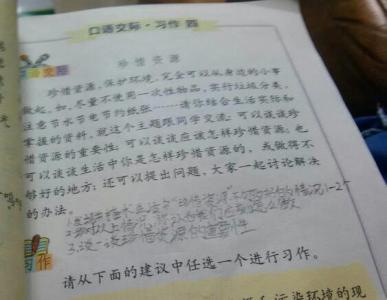 口语交际·习作 四
语交际
珍惜资源
珍惜资源,保护环境,完全可以从身边的小事
做起。如,尽量不使用一次性物品,实行垃圾分类,
注意节水节电节约纸张……请你结合生活实际和
掌握的资料,就这个主题跟同学交流:可以谈谈珍
惜资源的重要性;可以谈谈应该怎样珍惜资源;也
可以谈谈生活中你是怎样珍惜资源的,或做得不
够好的地方;还可以提出问题,大家一起讨论解决
的办法。
情况1-2个
2.
怎么做
3.谈一谈珍惜资源的重要性
习作
请从下面的建议中任选一个进行习作。
污染环境的现